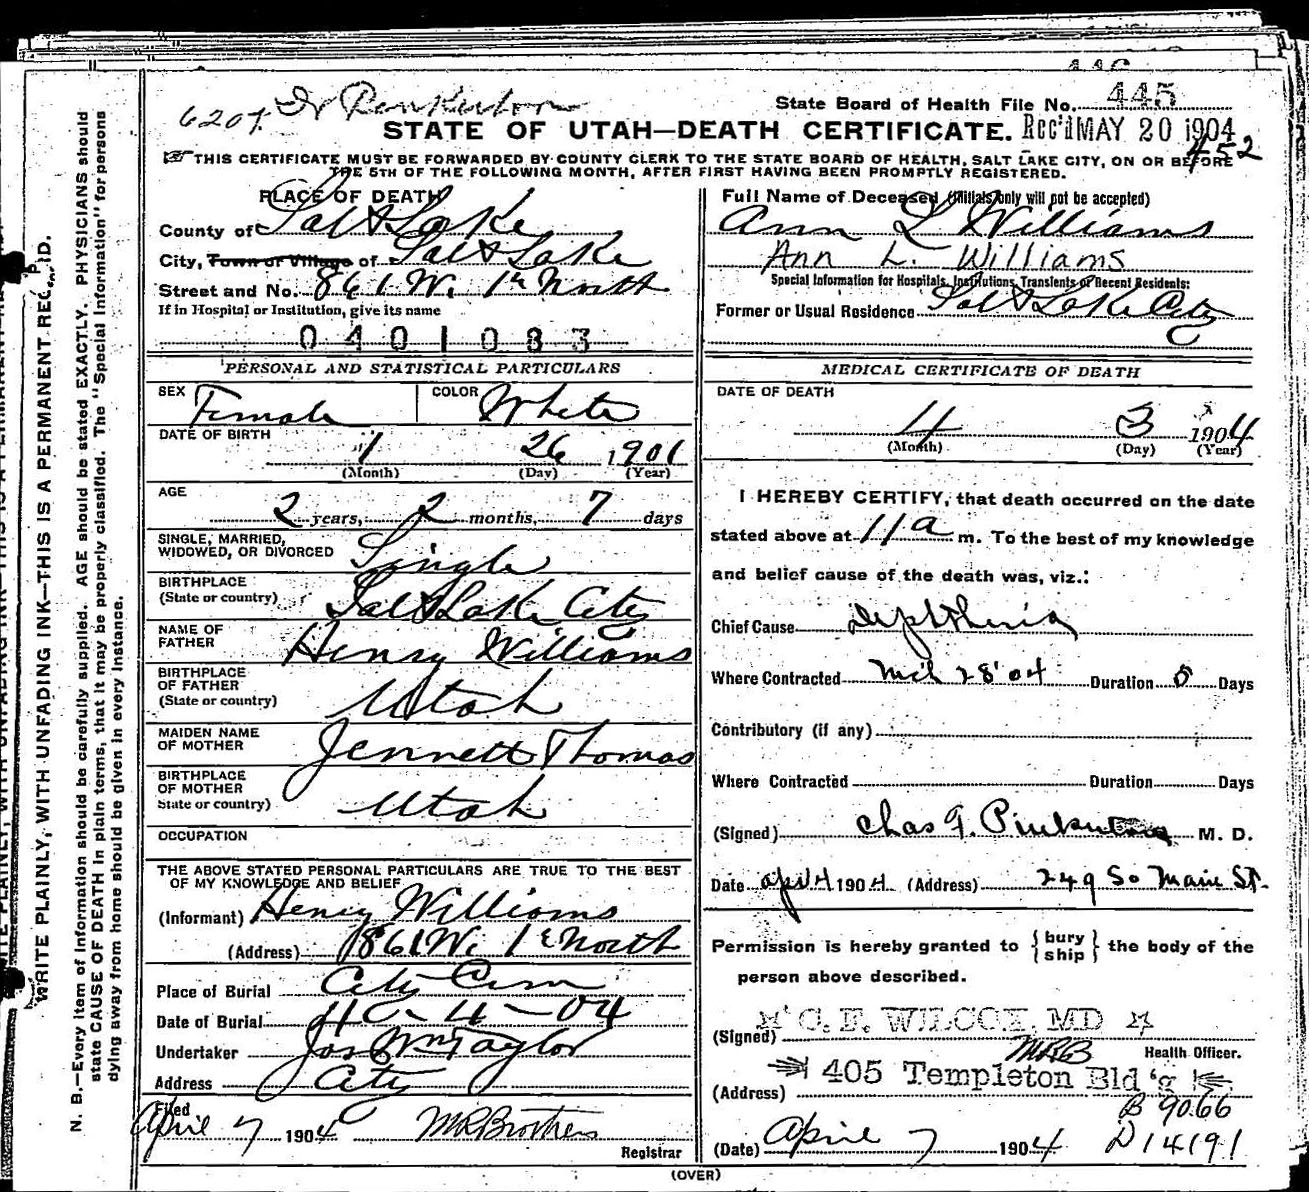 446
6201. Dr Penkerton
State Board of Health File No. 445
STATE OF UTAH—DEATH CERTIFICATE. Rec'd MAY 20 1904
452
THIS CERTIFICATE MUST BE FORWARDED BY COUNTY CLERK TO THE STATE BOARD OF HEALTH, SALT LAKE CITY, ON OR BEFORE
THE 5TH OF THE FOLLOWING MONTH, AFTER FIRST HAVING BEEN PROMPTLY REGISTERED.
PLACE OF DEATH
County of Salt Lake
City, Town or Village of Salt Lake
Street and No. 861 W. 1st North
If in Hospital or Institution, give its name
0401083
PERSONAL AND STATISTICAL PARTICULARS
SEX Female COLOR White
DATE OF BIRTH
1 26 1901
(Month) (Day) (Year)
AGE
2 years, 2 months, 7 days
SINGLE, MARRIED,
WIDOWED, OR DIVORCED Single
BIRTHPLACE
(State or country) Salt Lake City
NAME OF
FATHER Henry Williams
BIRTHPLACE
OF FATHER
(State or country) Utah
MAIDEN NAME
OF MOTHER Jennett Thomas
BIRTHPLACE
OF MOTHER
State or country) Utah
OCCUPATION
THE ABOVE STATED PERSONAL PARTICULARS ARE TRUE TO THE BEST
OF MY KNOWLEDGE AND BELIEF
(Informant) Henry Williams
(Address) 861 W. 1st North
Place of Burial City Cem
Date of Burial 4-04
Undertaker Jos Wm Taylor
Address City
Filed
April 7 1904 MRBrothers
Registrar
Full Name of Deceased (Initials only will not be accepted)
Ann L Williams
Ann L. Williams
Special Information for Hospitals, Institutions, Transients or Recent Residents:
Former or Usual Residence Salt Lake City
MEDICAL CERTIFICATE OF DEATH
DATE OF DEATH
4 3 1904
(Month) (Day) (Year)
I HEREBY CERTIFY, that death occurred on the date
stated above at 11 a m. To the best of my knowledge
and belief cause of the death was, viz.:
Chief Cause Depththeria
Where Contracted Mch 28 '04 Duration Days
Contributory (if any)
Where Contracted Duration Days
(Signed) Chas G. M. D.
Date Apr 4 1904 (Address) 249 So Main St.
Permission is hereby granted to { bury ship } the body of the
person above described.
(Signed) C. F. WILCOX, MD
MRB Health Officer.
(Address) 405 Templeton Bld'g
B 9066
(Date) April 7 1904 D14191
(OVER)
WRITE PLAINLY, WITH UNFADING INK—THIS IS A PERMANENT RECORD.
N. B.—Every item of information should be carefully supplied. AGE should be stated EXACTLY. PHYSICIANS should
state CAUSE OF DEATH in plain terms, that it may be properly classified. The "Special Information" for persons
dying away from home should be given in every instance.